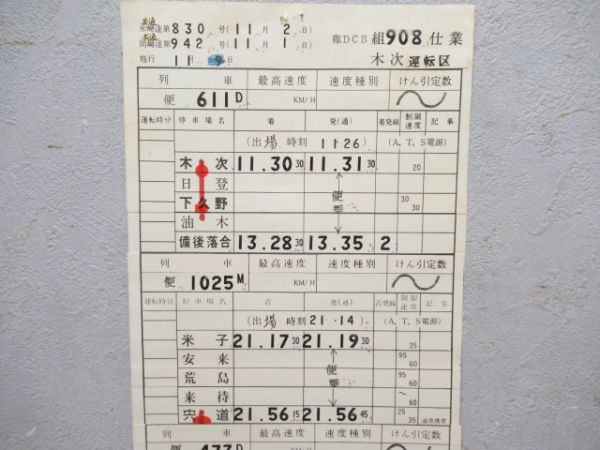 米局達第830号(11月2日)
同局達第942号(11月 日)
施行 11月9日
臨DCB組908仕業
木次運転区
列車 最高速度 速度種別 けん引定数
便 611D KM/H
運転時分 停車場名 着 発(通) 着発線 制限速度 記事
(出場時刻 11 26) (A,T,S電源)
木次 11.30 30 11.31 30 20
日登
下久野 30 30
便乗
油木
備後落合 13.28 30 13.35 2
列車 最高速度 速度種別 けん引定数
便 1025M KM/H
運転時分 停車場名 着 発(通) 着発線 制限速度 記事
(出場時刻 21.14) (A,T,S電源)
米子 21.17 30 21.19 30 35
安来 95 60
荒島 便乗 95 60
来待 〜 60
宍道 21.56 15 21.56 45 25 35
列車 最高速度 速度種別 けん引定数
便 473D KM/H